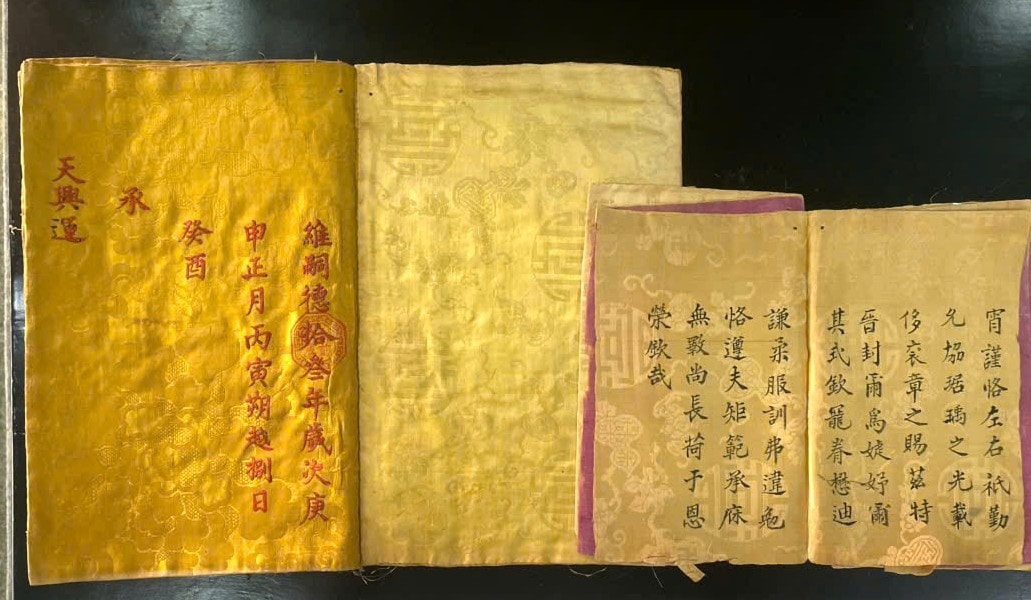 宵謹恪左右祇勤
允協琚瑀之光載
侈衮章之賜茲特
晉封爾為婕妤爾
其式欽寵眷懋迪
謙柔服訓弗違勉
恪遵夫矩範承庥
無斁尚長荷于恩
榮欽哉
維嗣德拾叁年歲次庚
申正月丙寅朔越捌日
癸酉
承
天興運